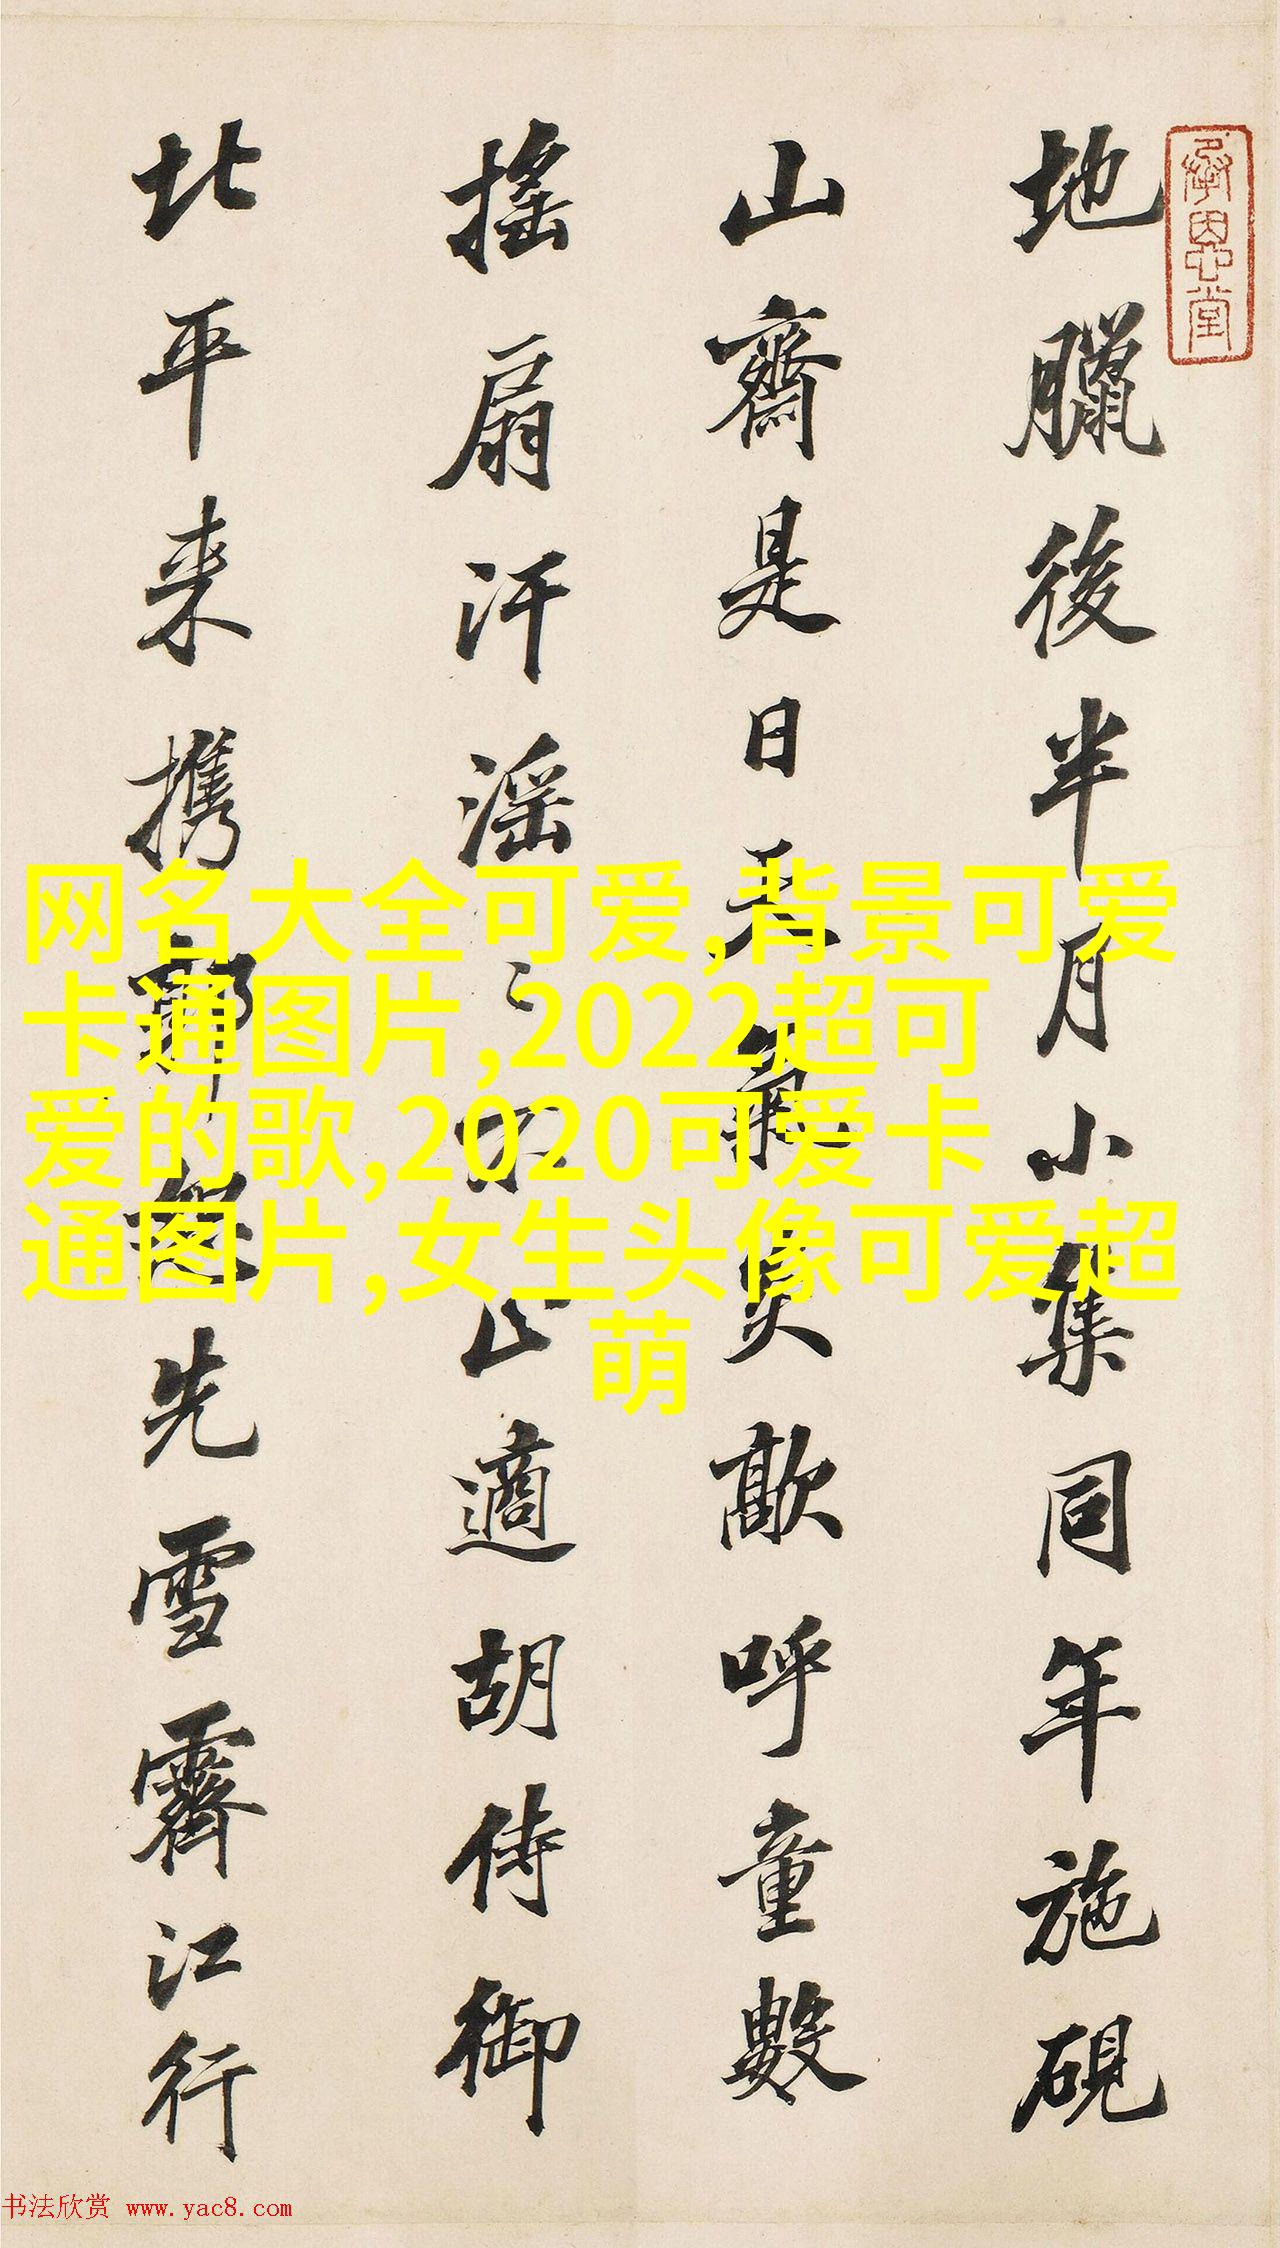 承恩堂
地臘後半月小集同年施硯
山齋是日天氣歊呼童數
搖扇汗滛〻不止適胡侍御
北平来携郭恕先雪霽江行
网名大全可爱,背景可爱
卡通图片,2022超可
爱的歌,2020可爱卡
通图片,女生头像可爱超
萌
书法欣赏 www.yac8.com